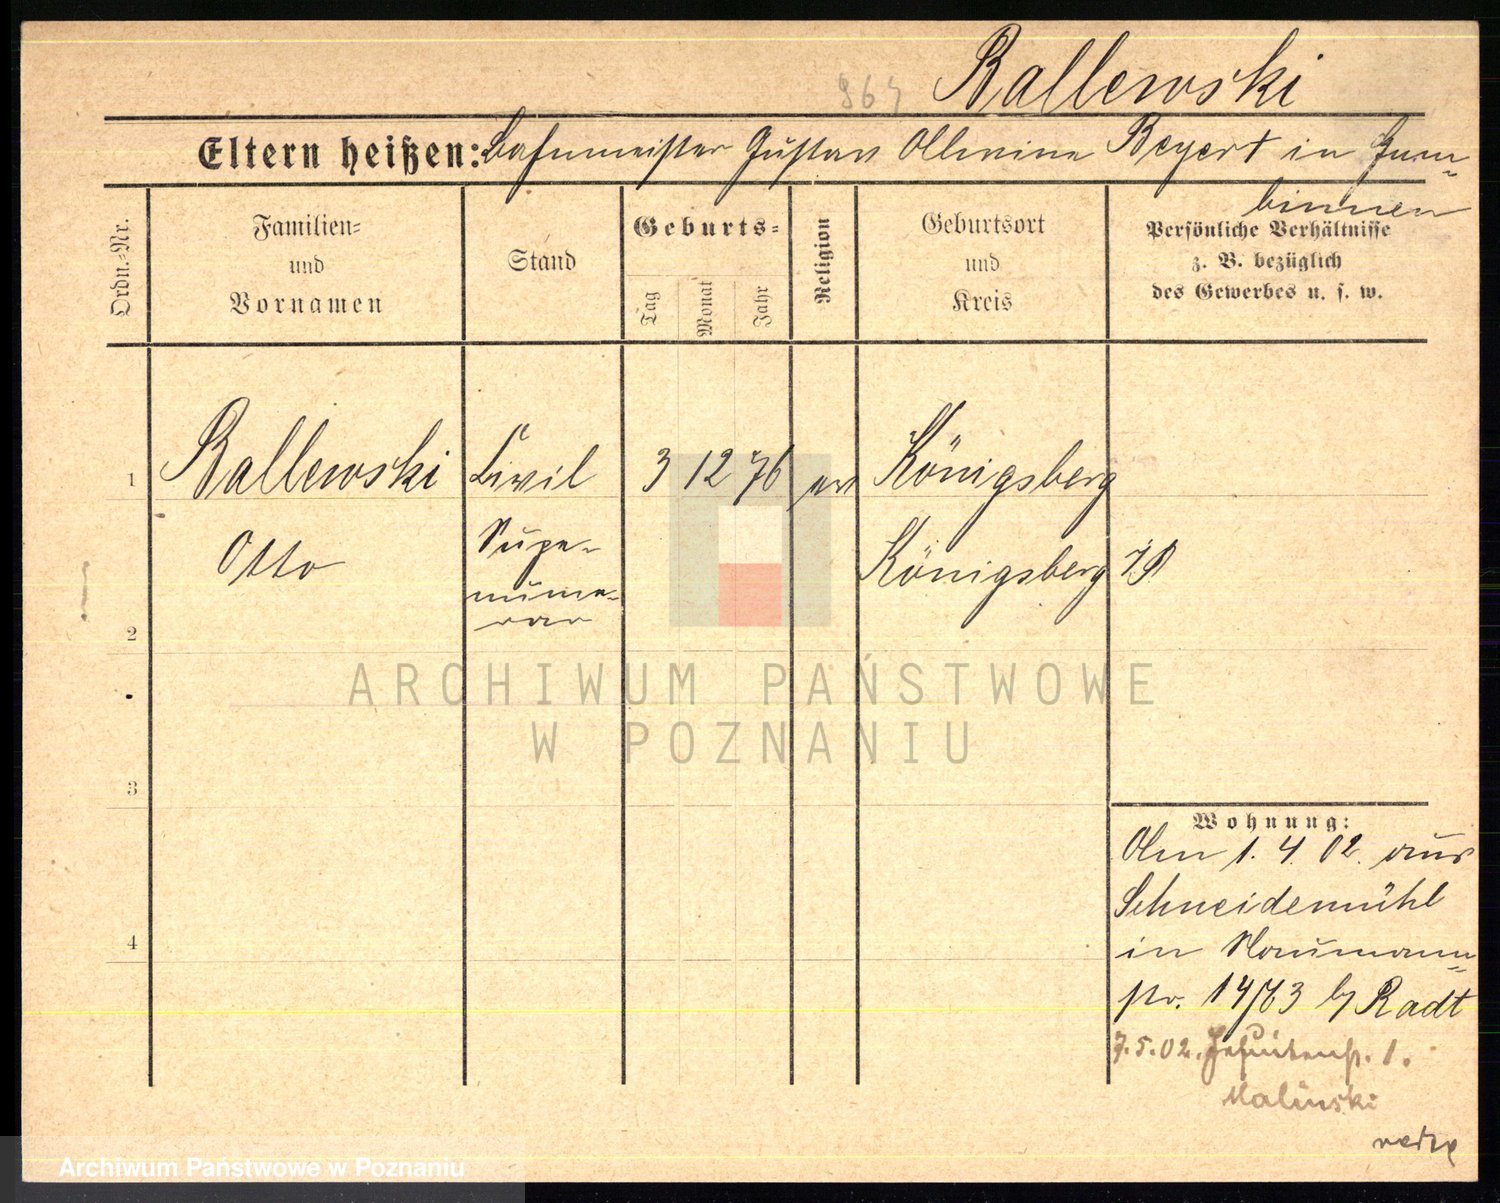 Ballewski
Eltern heißen: Bahnmeister Gustav Beyert in Gum-
binnen
Ordn.-Nr.
Familien-
und
Vornamen
Stand
Geburts-
Tag
Monat
Jahr
Religion
Geburtsort
und
Kreis
Persönliche Verhältnisse
z. B. bezüglich
des Gewerbes u. s. w.
1 Ballewski Civil 3 12 76 ev Königsberg
Otto Supe- Königsberg
nume-
rar
2
3
4
Wohnung:
Am 1. 4. 02. aus
Schneidemühl
in Naumann-
str. 14/II 3 by Radt
7.5.02. Jesuitenstr. 1.
Malinski
ARCHIWUM PAŃSTWOWE
W POZNANIU
Archiwum Państwowe w Poznaniu